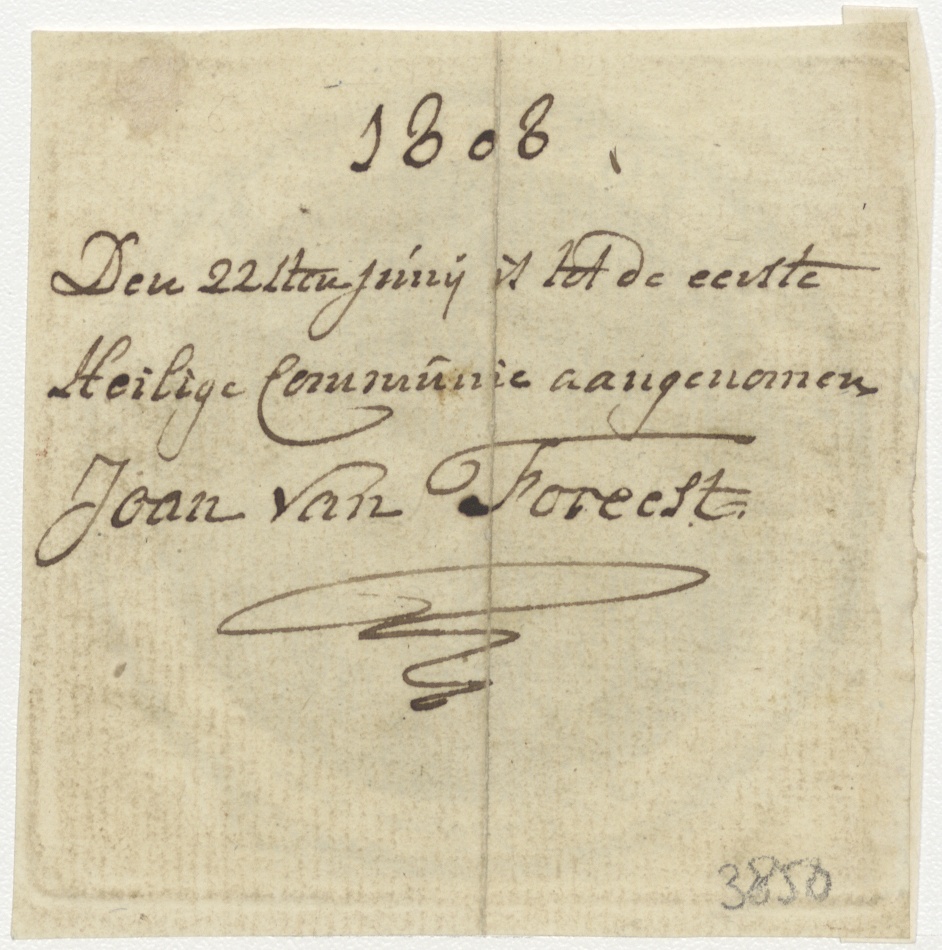 1808
Den 22sten junij is tot de eerste
Heilige Communie aangenomen
Joan van Foreest.
3850